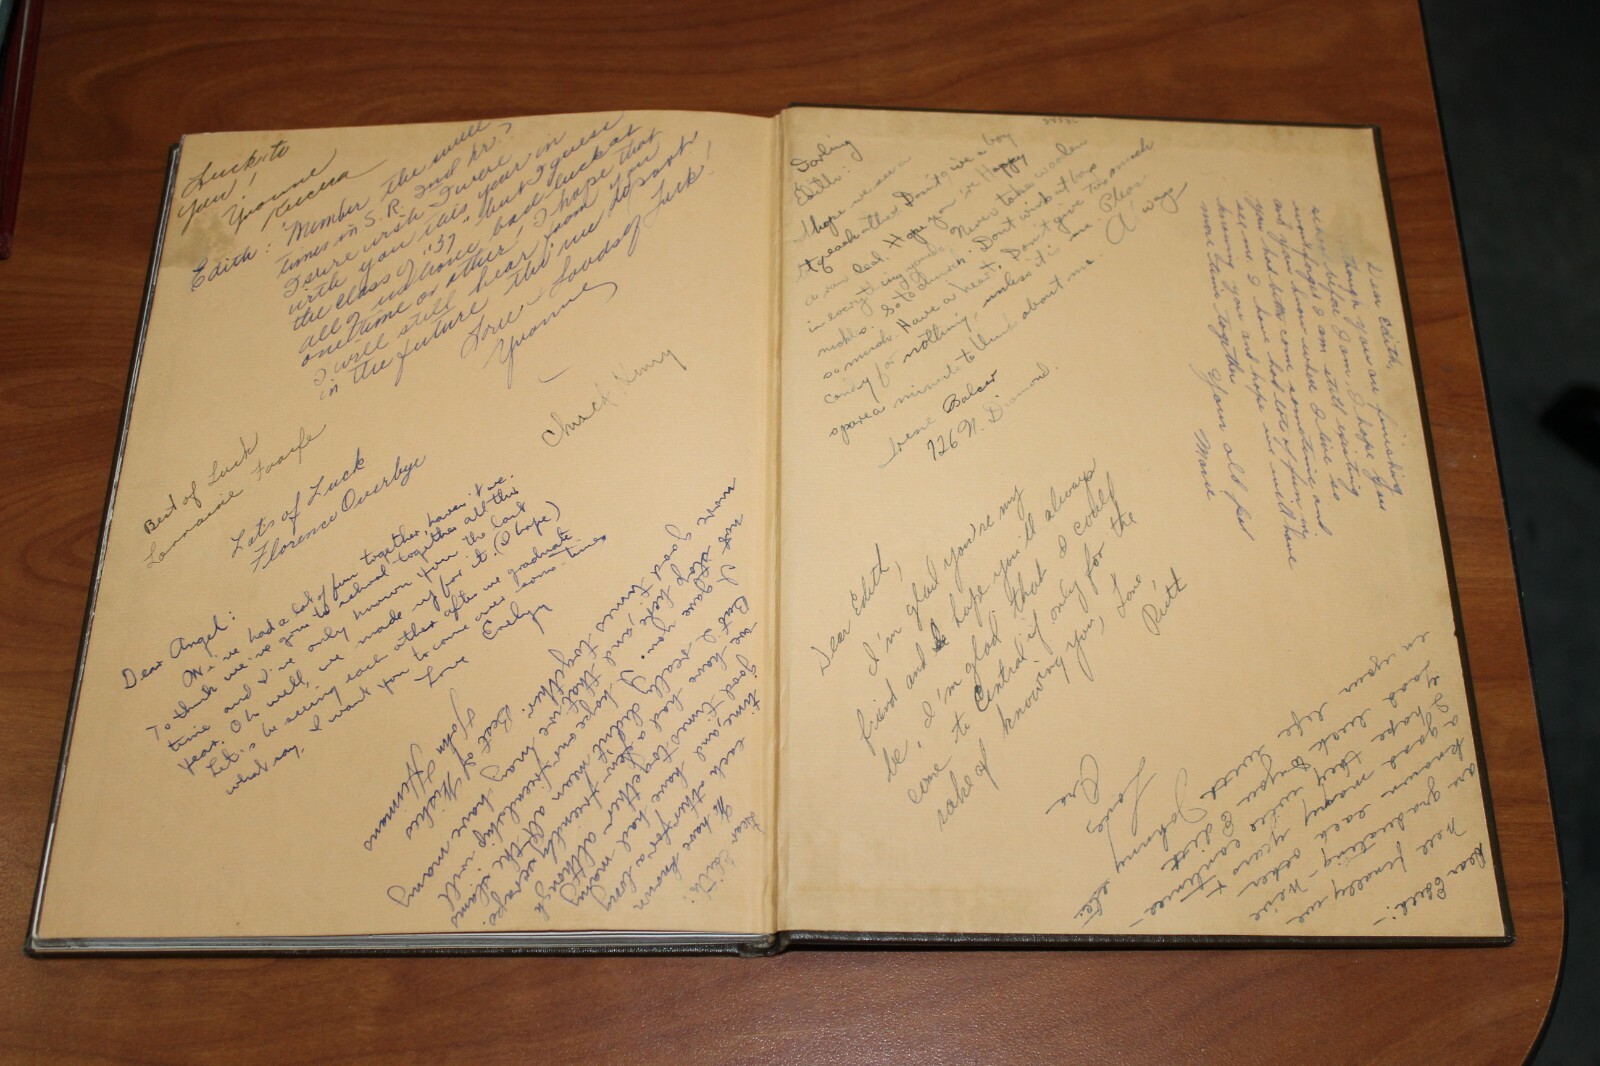 Luck to
You!
Yvonne
Kucera
Edith: 'Member the swell
times in S.R. 2nd hr.?
I sure wish I were
with you this year in
the class of "37" but I guess
all I had bad luck at
one time or other, I hope that
I will still hear from you
in the future time, we depart
Love - Loads of Luck!
Yvonne
Chuck Henry
Best of Luck
Lorraine
Lots of Luck
Florence Overbye
Dear Angel:
We've had a lot of fun together, haven't we.
To think we've gone to school together all this
time and I've only known you the last
year. Oh well, we made up for it. (I hope)
Let's be seeing each other after we graduate
what say, I want you to come over some-times
Love Evelyn
Dear Edith:
We have known
each other for a long
time and have had many
good times together although
we have had a few friendly scraps.
But I really didn't mean all the slams
I gave you. I hope our friendship will
not stop here, and that we may have many
more good times together. Best of Wishes
John Hermans
Darling
Edith:
I hope we see
each other. Don't give a boy
a raw deal. Hope you're Happy
in everything you do. Never take wooden
nickles. Go to church. Don't wink at boys
so much. Have a heart. Don't give too much
candy for nothing, unless it's me. Please
spare a minute to think about me. Always
Irene Balcer
726 N. Diamond.
Dear Edith,
Though you are finishing
school before I am, I hope you
won't forget I am still existing so
and you know where I live and
you had better come sometime and
see me. I have had lots of fun in
knowing you and hope we will have
more times together
Your old pal
Marie
Dear Edith,
I'm glad you're my
friend and hope you'll always
be, I'm glad that I could
come to Central if only for the
sake of knowing you, Love
Ruth
Dear Edith:-
Well finally we
are graduating - We've
known each other
a good many years &
I hope they will continue -
Good luck to you Edith
in your life
Love,
Johnny